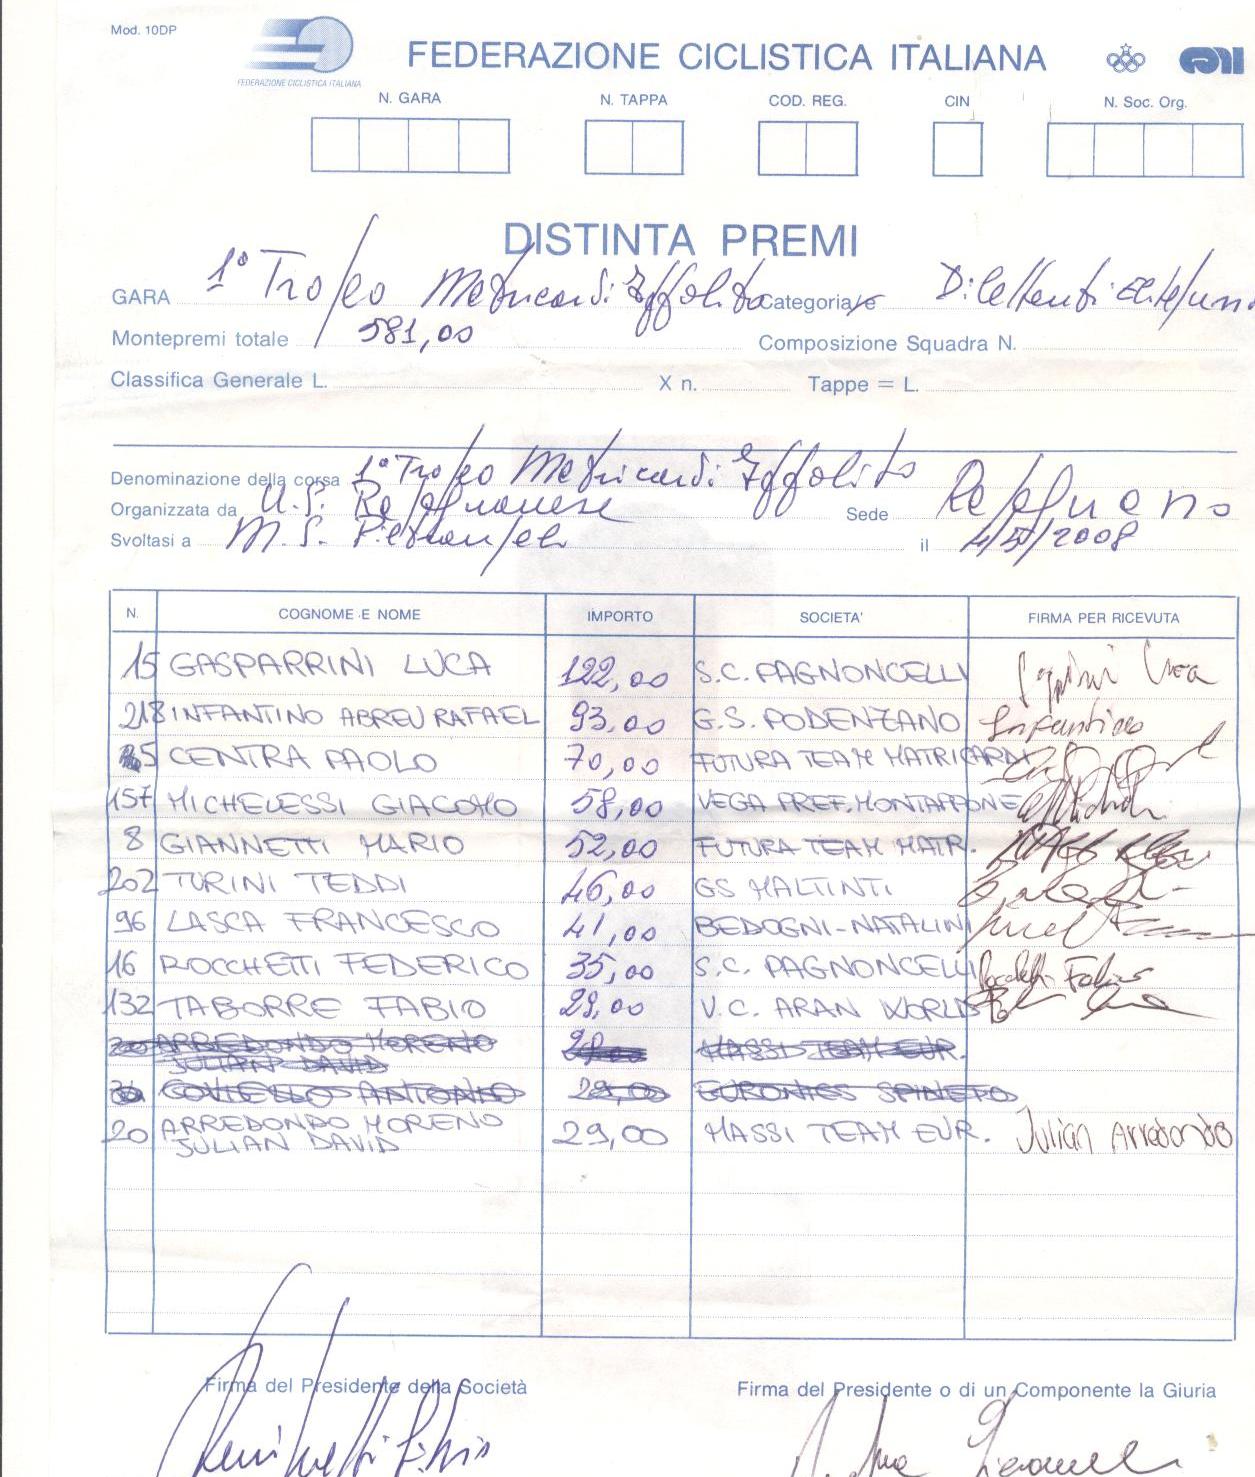 Mod. 10DP
FEDERAZIONE CICLISTICA ITALIANA
FEDERAZIONE CICLISTICA ITALIANA
N. GARA N. TAPPA COD. REG. CIN N. Soc. Org.
DISTINTA PREMI
GARA 1° Trofeo Matricardi Ippolito Categoria/e Dilettanti
Montepremi totale 581,00 Composizione Squadra N.
Classifica Generale L. X n. Tappe = L.
Denominazione della corsa 1° Trofeo Matricardi Ippolito
Organizzata da U.S. Rapagnanese Sede Rapagnano
Svoltasi a M. S. Pietrangeli il 4/5/2008
N. COGNOME E NOME IMPORTO SOCIETA' FIRMA PER RICEVUTA
15 GASPARRINI LUCA 122,00 S.C. PAGNONCELLI Luca
218 INFANTINO ABREU RAFAEL 93,00 G.S. PODENZANO Infantino
5 CENTRA PAOLO 70,00 FUTURA TEAM MATRICARDI
157 MICHELESSI GIACOMO 58,00 VEGA PREF. MONTAPPONE
8 GIANNETTI MARIO 52,00 FUTURA TEAM MATR.
202 TURINI TEDDI 46,00 GS MALTINTI
96 LASCA FRANCESCO 41,00 BEDOGNI-NATALINI
16 ROCCHETTI FEDERICO 35,00 S.C. PAGNONCELLI
132 TABORRE FABIO 29,00 V.C. ARAN WORLD
20 ARREDONDO MORENO MASSI TEAM EUR.
JULIAN DAVID
COVIELLO ANTONIO 29,00 EURONICS SPINETO
20 ARREDONDO MORENO 29,00 MASSI TEAM EUR. Julian Arredondo
JULIAN DAVID
Firma del Presidente della Società Firma del Presidente o di un Componente la Giuria